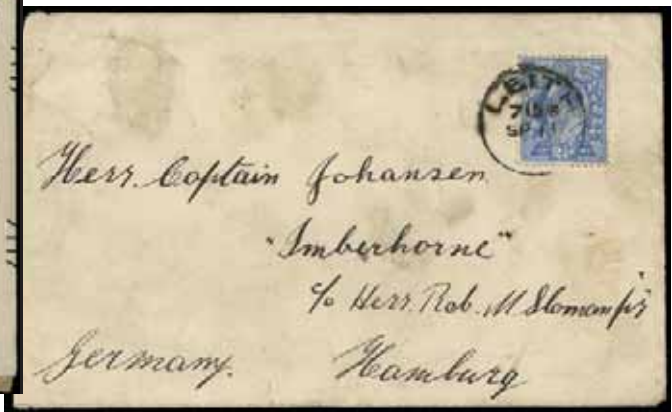 LEITH
7 15 P
SP 11
Herr. Captain Johansen
"Imberhorne"
c/o Herr. Rob. M Sloman jr's
Germany. Hamburg